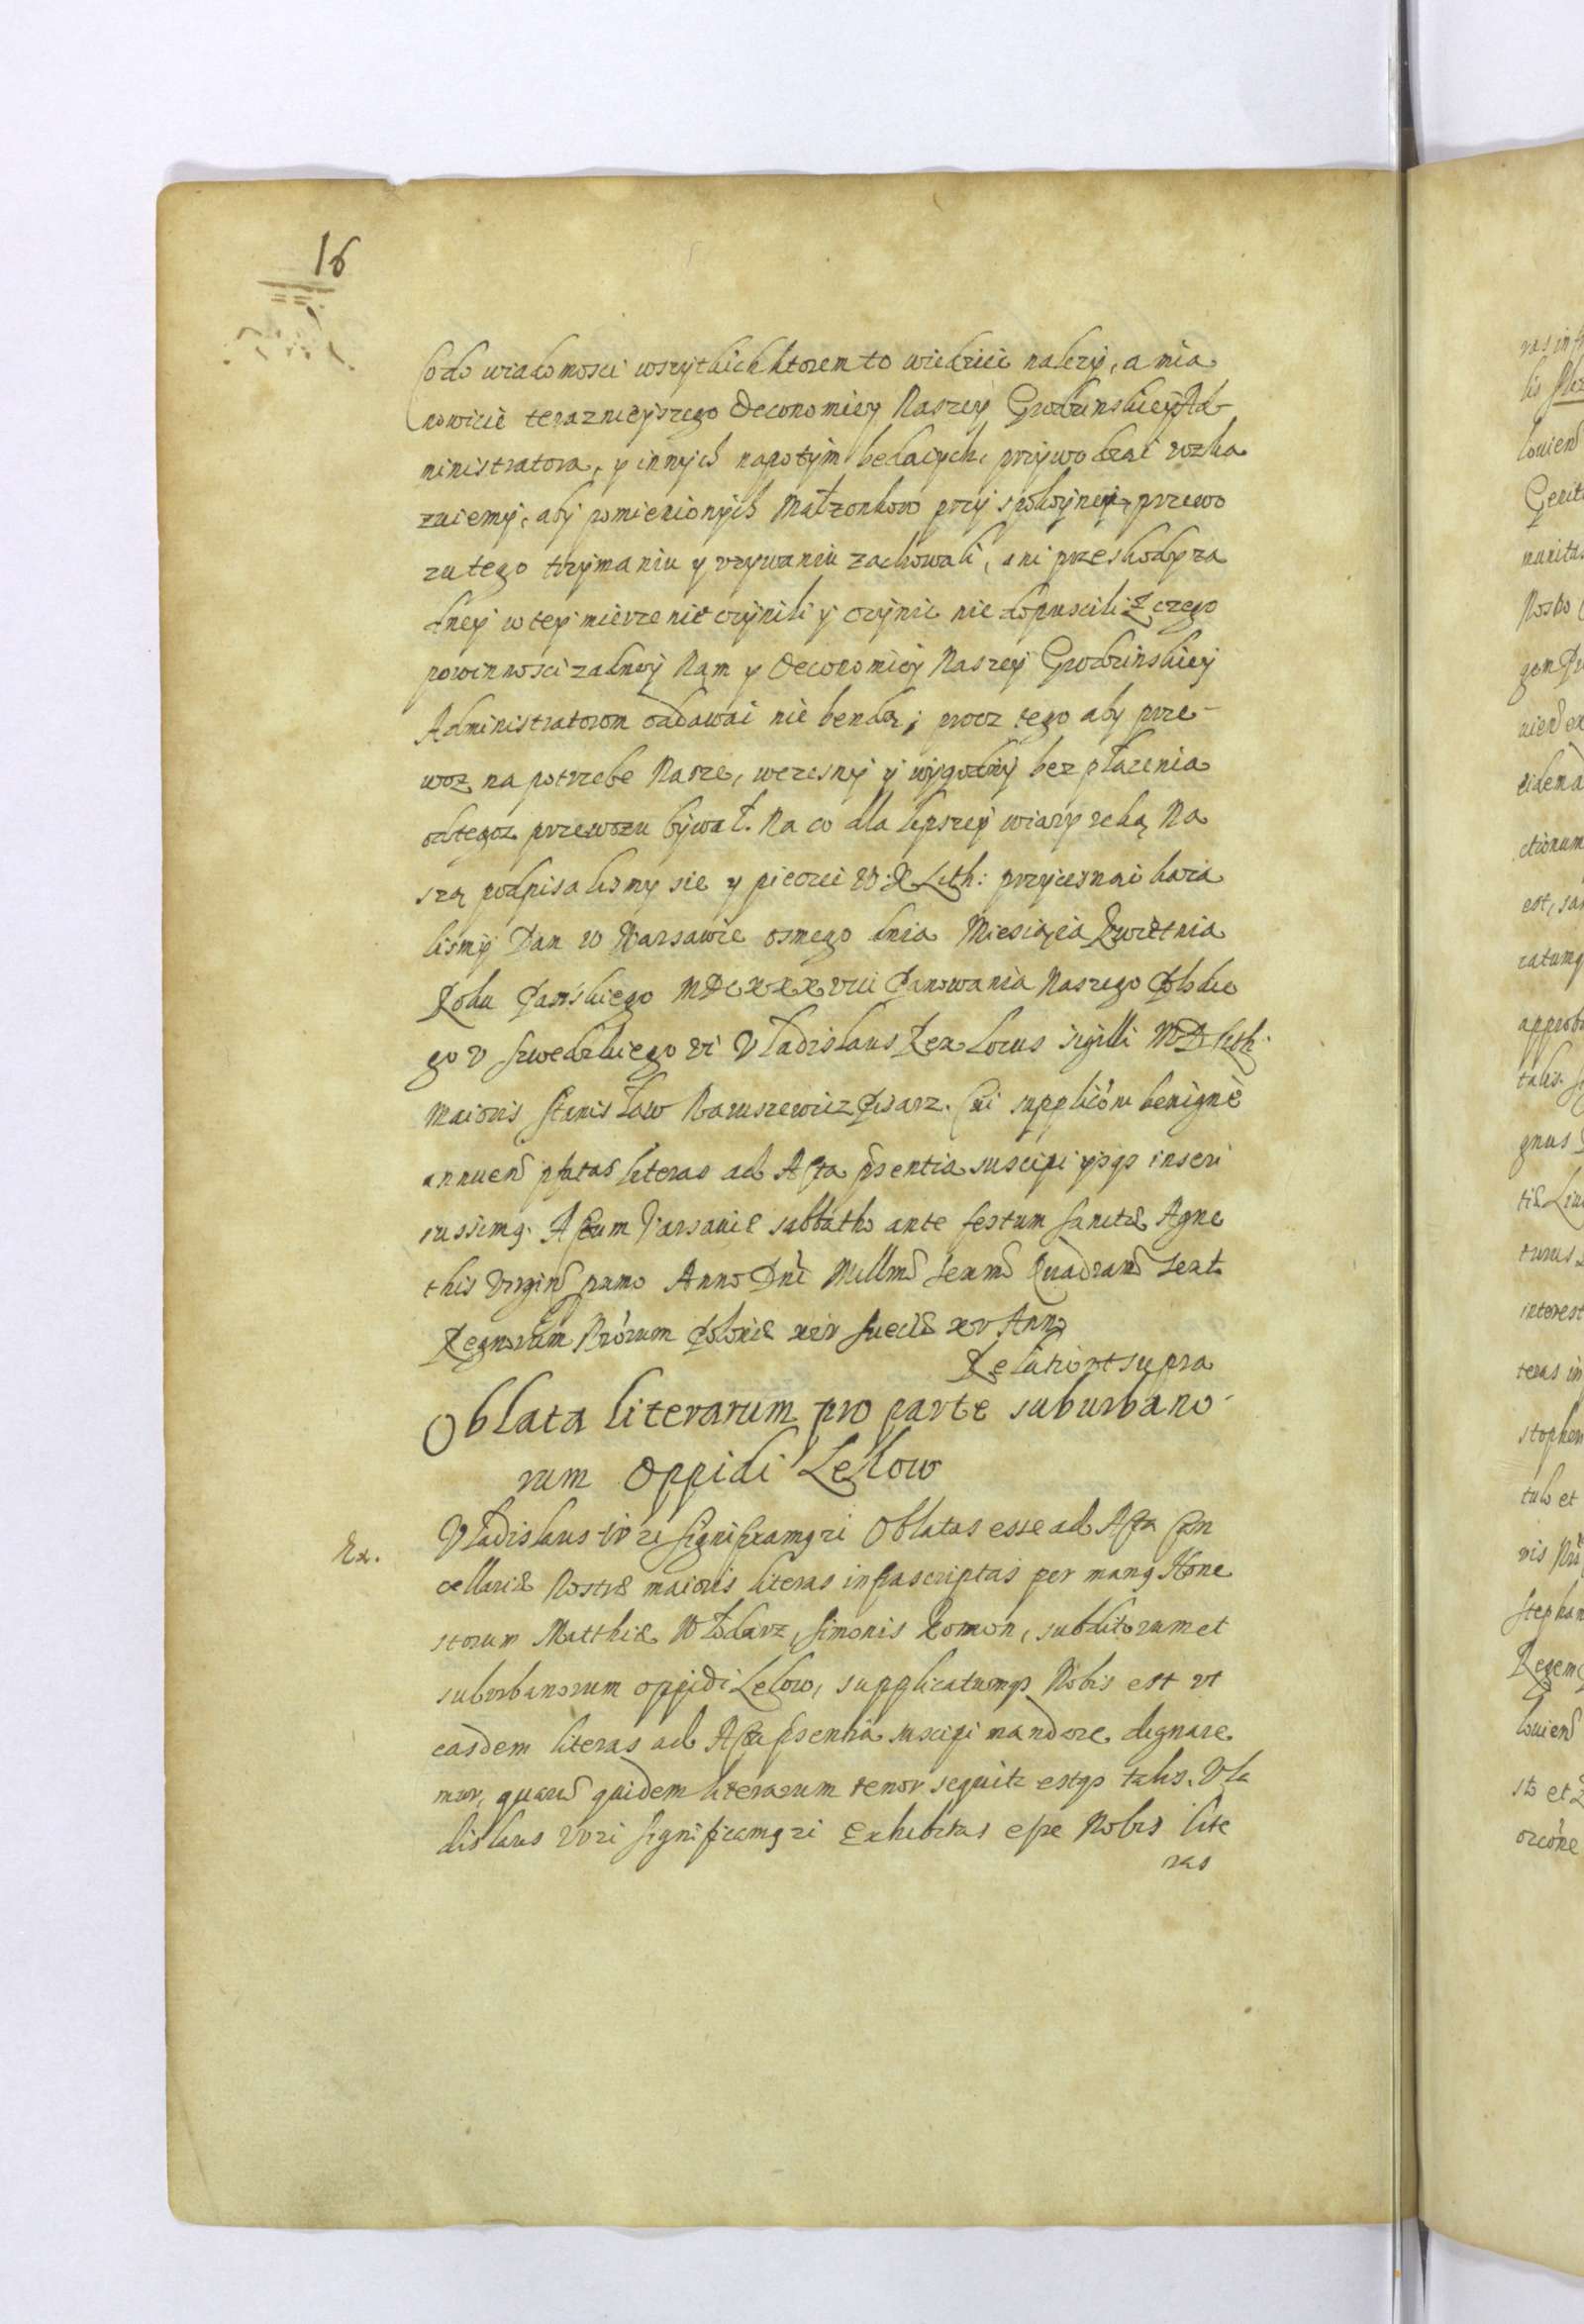 16
Co do wiadomosci wszytkich ktorem to wiedziec nalezy, a mia
nowicie terazniejszego Oeconomiey Naszey Grodzinskiey Ad-
ministratora, y innych napotym bedacych, przywodzac rozka
zuiemy, aby pomienionych Małzonkow przy spokoynem przewo
zu tego trzymaniu y vzywaniu zachowali, ani przeskody za
dney w tey mierze nie czynili y czynic nie dopuscili z czego
powinnosci zadney Nam y Oeconomiey Naszey Grodzinskiey
Administratorom oddawac nie bendą; procz tego aby prze-
woz na potrzebe Nasze, wczesny y wygodny bez płacenia
od tegoz przewozu bywał. Na co dla lepszey wiary ręką Na
szą podpisalismy sie y pieczęc W. X Lith: przycisnąc kaza
lismy Dan w Warsawie osmego dnia Miesiąca Kwietnia
Roku Pańskiego MDCXXXVIII Panowania Naszego Polskie
go V Szwedzkiego VI Vladislaus Rex Locus sigilli M D Lith.
Maioris Stanisław Naruszewicz Pisarz. Cui supplicõni benignè
annuen̄ pfatas literas ad Acta p̄sentia suscipi ysq3 inseri
iussimq3. Actum Varsaviæ sabbatho ante festum Sanctæ Agne
this Virgin̄ primo Anno Dni Millmo Sexmo Quadrano Sexto
Regnorum Nrõrum Poloniæ XIV Sueciæ XV Anno
Relatio vt supra
Oblata literarum pro parte suburbano-
rum Oppidi Lelow
Ex.
Vladislaus IV zc Significamq3 zc Oblatas esse ad Acta Can
cellariæ Nostræ maioris literas infrascriptas per manq3 Hone
storum Matthiæ Włodarz, Simonis Komon, subditorum et
suburbanorum oppidi Lelow, supplicatumq3 Nobis est vt
easdem literas ad Acta p̄sentia suscipi mandare dignare
mur, quarū quidem literarum tenor sequitr estq3 talis. Vla
dislaus IV zc Significamq3 zc Exhibitas esse Nobis lite
ras